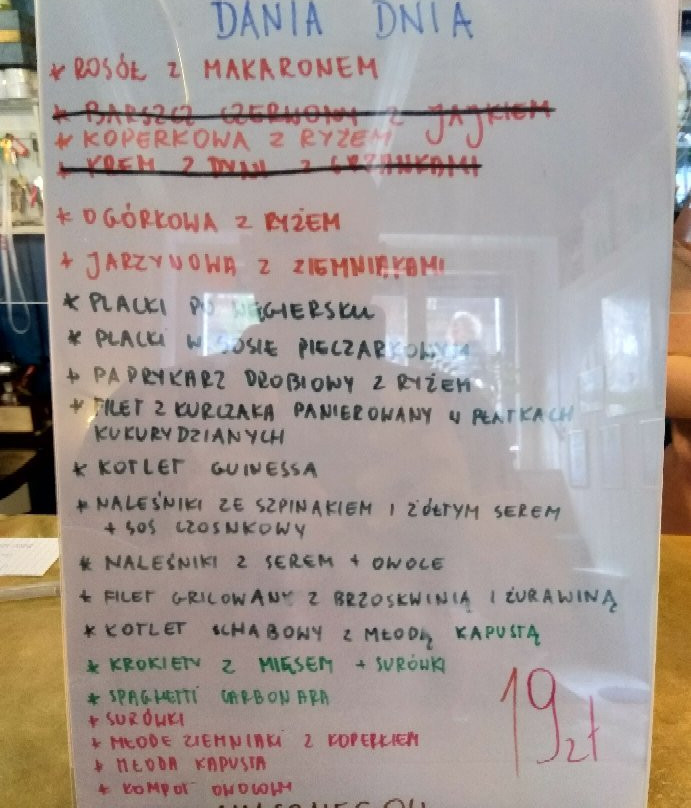 DANIA DNIA
* ROSÓŁ Z MAKARONEM
* BARSZCZ CZERWONY Z JAJKIEM
* KOPERKOWA Z RYŻEM
* KREM Z DYNI Z GRZANKAMI
* OGÓRKOWA Z RYŻEM
* JARZYNOWA Z ZIEMNIAKAMI
* PLACKI PO WĘGIERSKU
* PLACKI W SOSIE PIECZARKOWYM
* PAPRYKARZ DROBIOWY Z RYŻEM
* FILET Z KURCZAKA PANIEROWANY W PŁATKACH
KUKURYDZIANYCH
* KOTLET GUINESSA
* NALEŚNIKI ZE SZPINAKIEM I ŻÓŁTYM SEREM
+ SOS CZOSNKOWY
* NALEŚNIKI Z SEREM + OWOCE
* FILET GRILOWANY Z BRZOSKWINIĄ I ŻURAWINĄ
* KOTLET SCHABOWY Z MŁODĄ KAPUSTĄ
* KROKIETY Z MIĘSEM + SURÓWKI
* SPAGHETTI CARBONARA
* SURÓWKI
* MŁODE ZIEMNIAKI Z KOPERKIEM
* MŁODA KAPUSTA
* KOMPOT OWOCOWY
19 zł